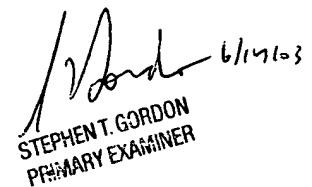 6/14/03
STEPHEN T. GORDON
PRIMARY EXAMINER